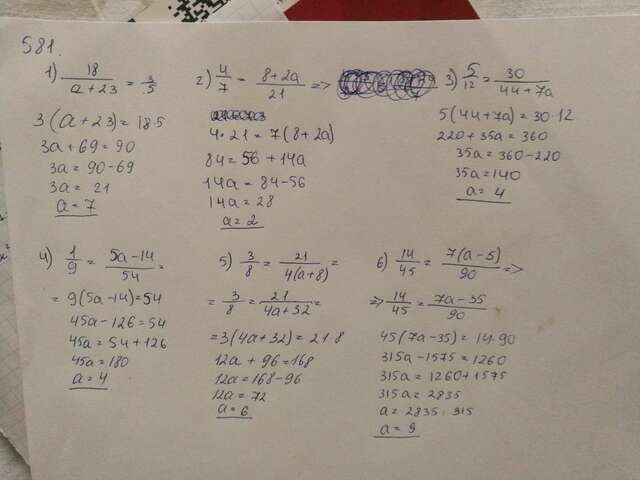 581.
1) 18/(a+23) = 3/5
3(a+23) = 18·5
3a+69 = 90
3a = 90-69
3a = 21
a = 7
2) 4/7 = (8+2a)/21 =>
4·21 = 7(8+2a)
84 = 56 + 14a
14a = 84-56
14a = 28
a = 2
3) 5/12 = 30/(44+7a)
5(44+7a) = 30·12
220+35a = 360
35a = 360-220
35a = 140
a = 4
4) 1/9 = (5a-14)/54 =
= 9(5a-14) = 54
45a-126 = 54
45a = 54+126
45a = 180
a = 4
5) 3/8 = 21/(4(a+8)) =
= 3/8 = 21/(4a+32) =
= 3(4a+32) = 21·8
12a + 96 = 168
12a = 168-96
12a = 72
a = 6
6) 14/45 = 7(a-5)/90 =>
=> 14/45 = (7a-35)/90
45(7a-35) = 14·90
315a-1575 = 1260
315a = 1260+1575
315a = 2835
a = 2835:315
a = 9